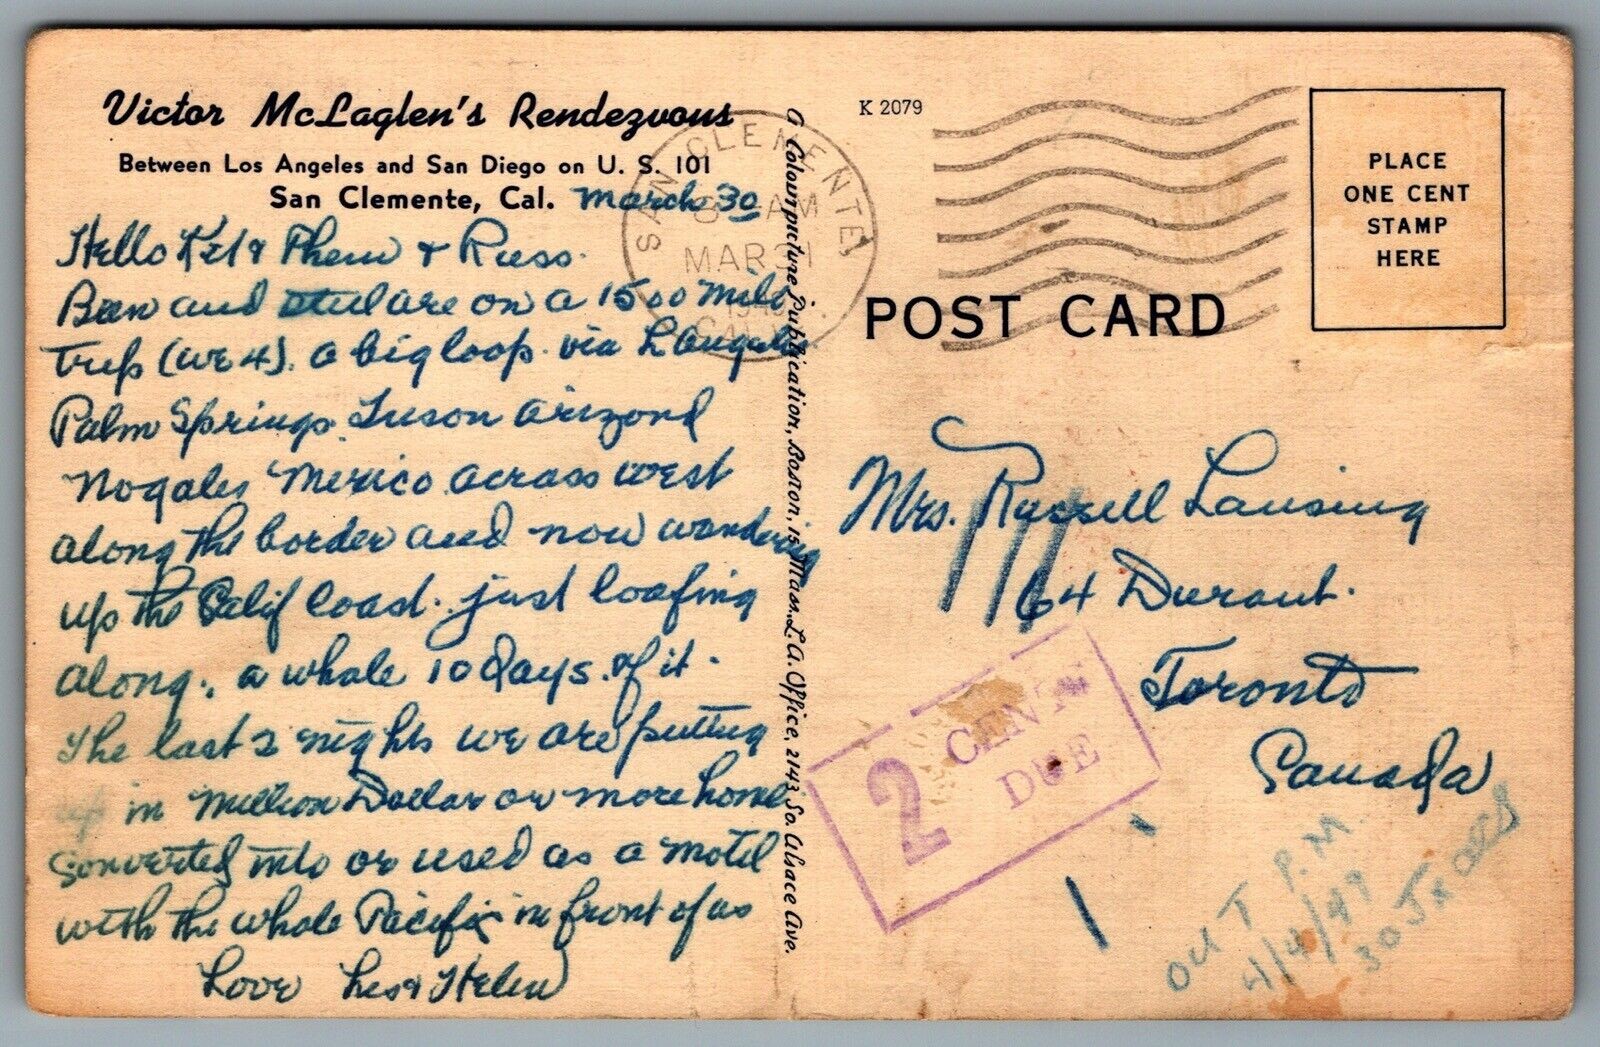 Victor McLaglen's Rendezvous
Between Los Angeles and San Diego on U. S. 101
San Clemente, Cal. March 30
Hello & Russ.
Been and are on a 1500 mile
trip (we 4). a big loop. via L Angeles
Palm Springs. Tuson arizona
Nogales Mexico across west
along the border and now wandering
up the Calif Coast. just loafing
along., a whole 10 days of it.
The last 2 nights we are putting
up in Million Dollar or more home
converted into or used as a motel
with the whole Pacific in front of us
Love Les & Helen
A Colourpicture Publication, Boston, 15, Mass. L.A. Office, 2143 So. Alsace Ave.
K 2079
SAN CLEMENTE
AM
MAR 31
CALIF.
PLACE
ONE CENT
STAMP
HERE
POST CARD
Mrs. Russell Lansing
64 Durant.
Toronto
Canada
2 CENTS
DUE
OUT P.M.
4/4/49